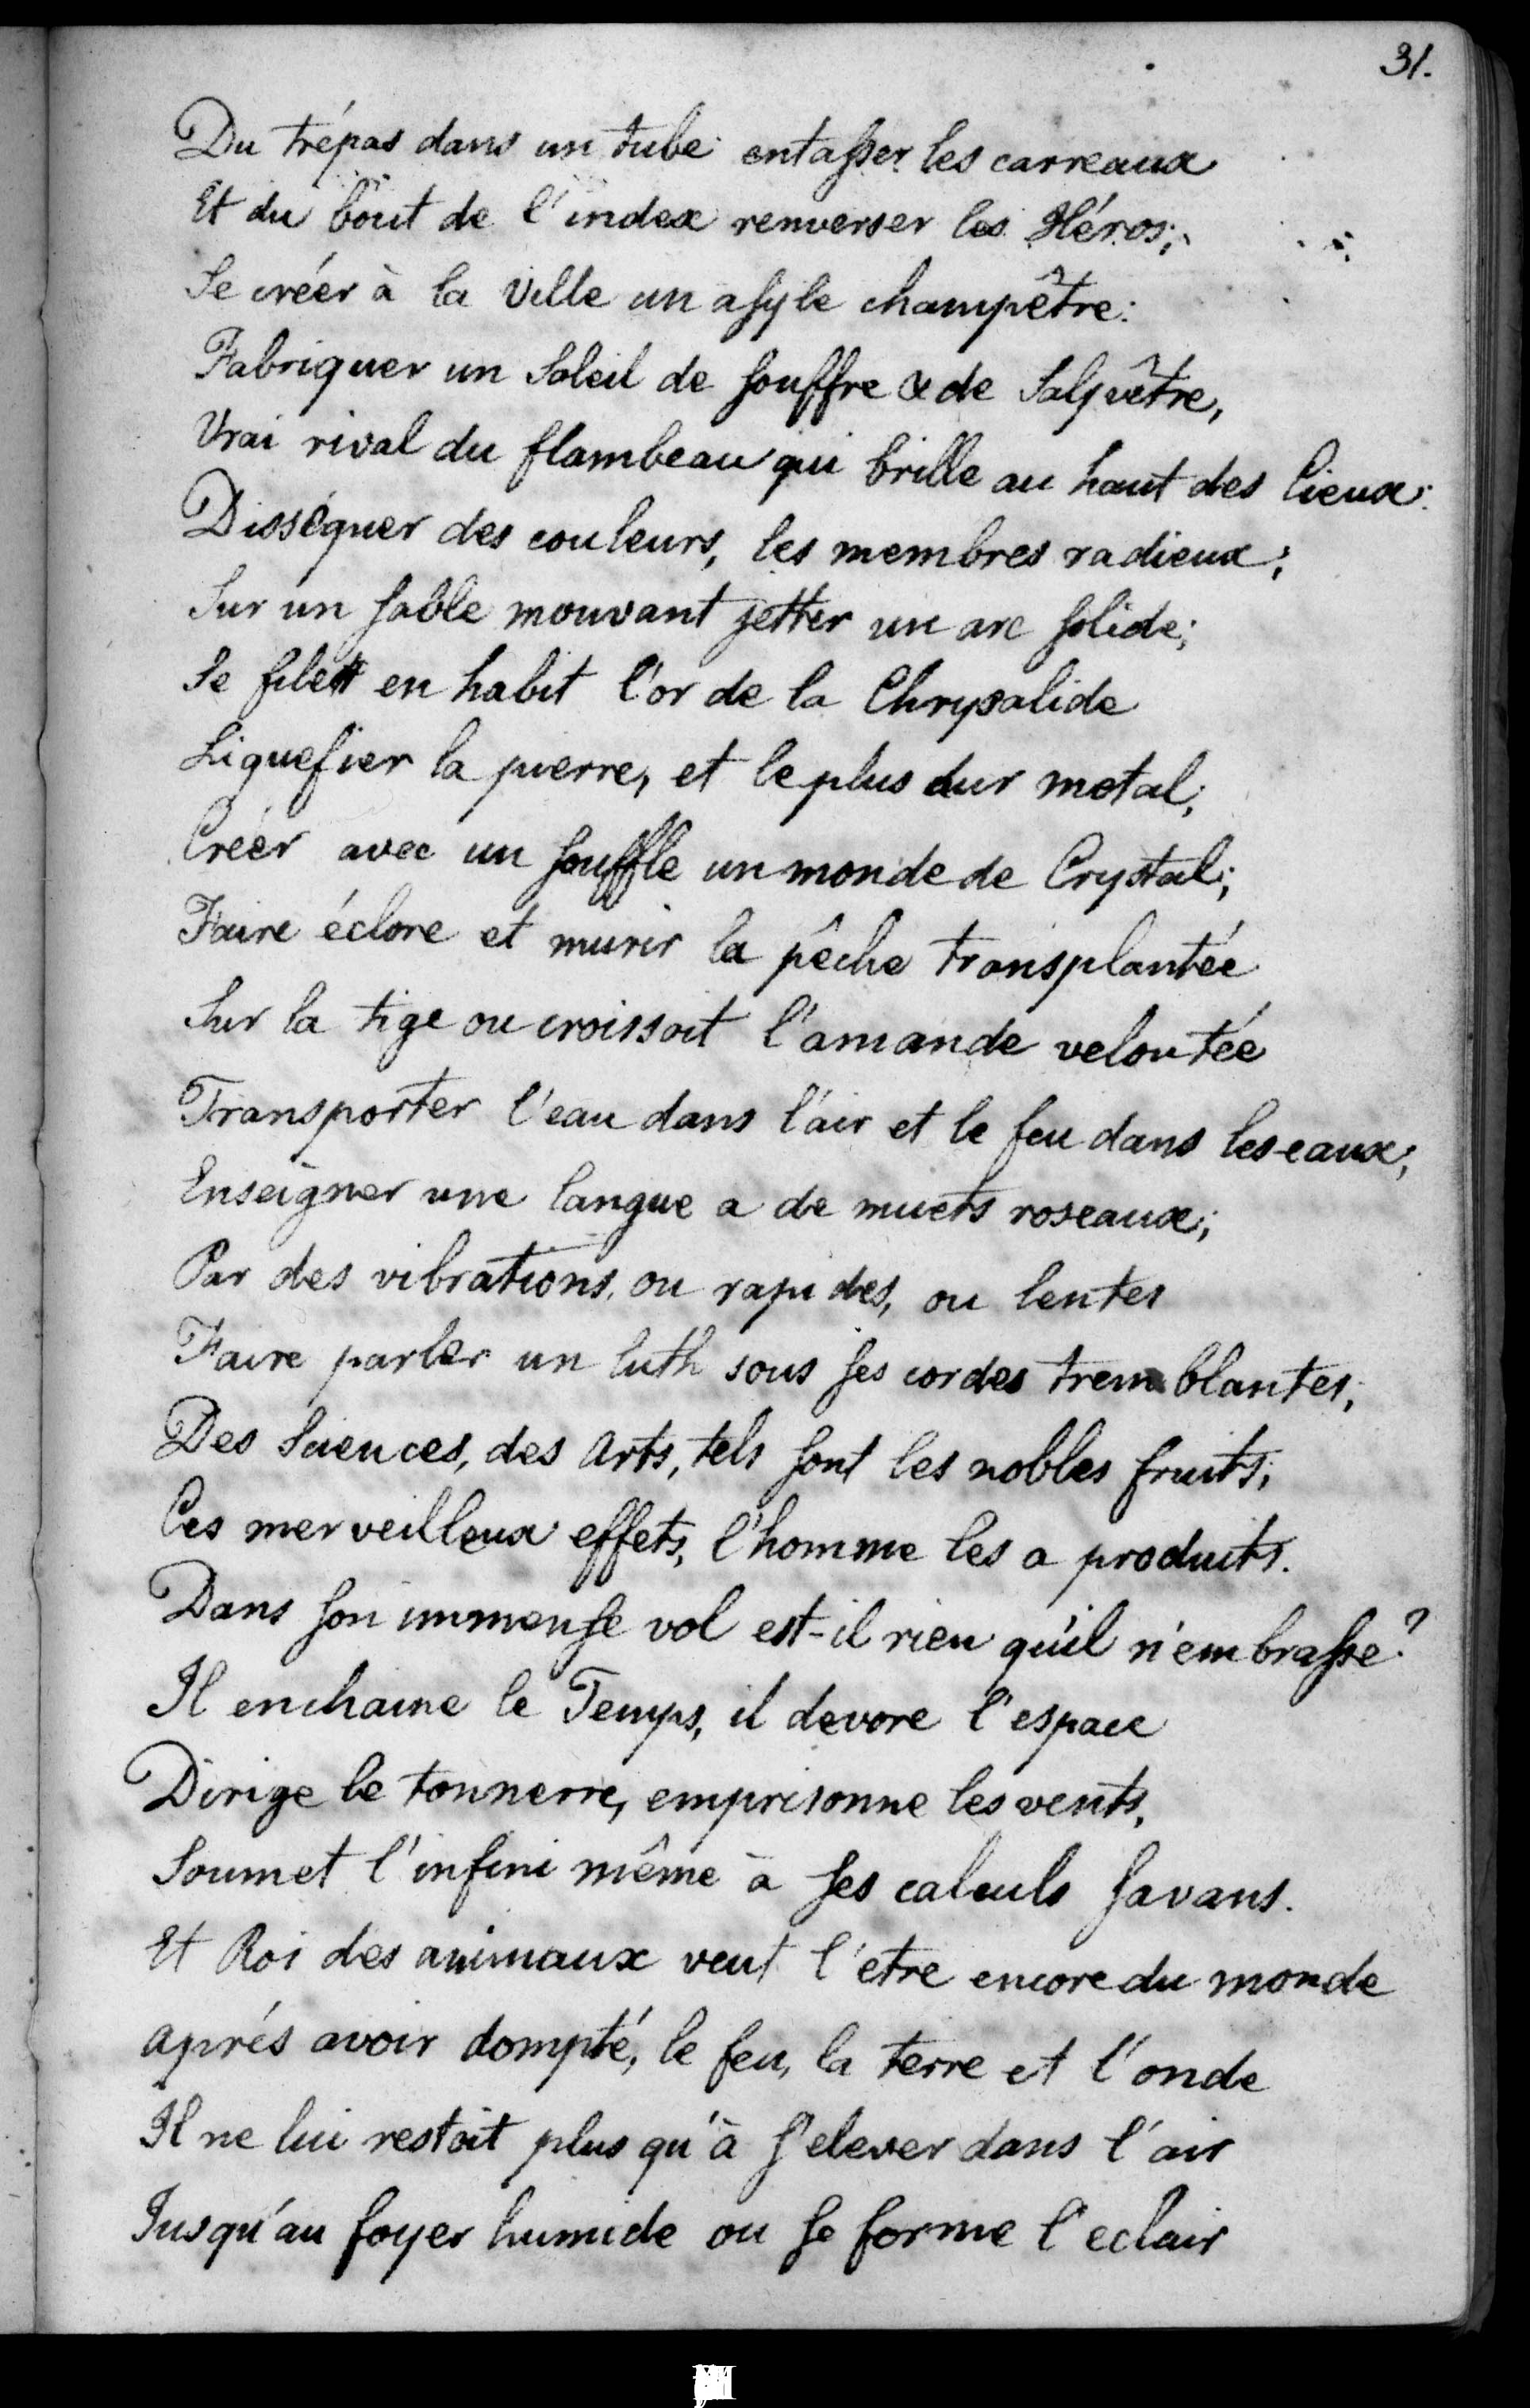 31.
Du trépas dans un tube entasser les carreaux
Et du bout de l'index renverser les Héros;
Se créer à la Ville un asyle champêtre:
Fabriquer un Soleil de souffre & de Salpêtre,
Vrai rival du flambeau qui brille au haut des Cieux:
Disséquer des couleurs, les membres radieux;
Sur un sable mouvant jetter un arc solide;
Se filer en habit l'or de la Chrysalide
Liquefier la pierre, et le plus dur metal;
Créer avec un souffle un monde de Crystal;
Faire éclore et murir la pêche transplantée
Sur la tige ou croissoit l'amande veloutée
Transporter l'eau dans l'air et le feu dans les eaux;
Enseigner une langue a de muets roseaux;
Par des vibrations, ou rapides, ou lentes
Faire parler un luth sous ses cordes tremblantes,
Des Sciences, des Arts, tels sont les nobles fruits;
Ces merveilleux effets, l'homme les a produits.
Dans son immense vol est-il rien qu'il n'embrasse?
Il enchaine le Temps, il devore l'espace
Dirige le tonnerre, emprisonne les vents,
Soumet l'infini même à ses calculs savans.
Et Roi des animaux veut l'etre encore du monde
Aprés avoir dompté, le feu, la terre et l'onde
Il ne lui restoit plus qu'à s'elever dans l'air
Jusqu'au foyer humide ou se forme l'eclair